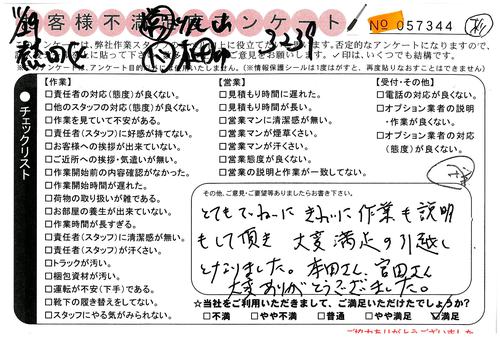 お客様不満足度アンケート
No 057344
3-2-39
アンケートは、弊社作業スタッフの
上に役立てた
否定的なアンケートになりますので、
お願いします。✓印は、いくつでも結構です。
(※情報保護シールは1度がはすと、再度貼りなおすことはできません)
チェックリスト
【作業】
□責任者の対応(態度)が良くない。
□他のスタッフの対応(態度)が良くない。
□作業を見ていて不安がある。
□責任者(スタッフ)に好感が持てない。
□お客様への挨拶が出来ていない。
□ご近所への挨拶・気遣いが無い。
□作業開始前の内容確認がなかった。
□作業開始時間が遅れた。
□荷物の取り扱いが雑である。
□お部屋の養生が出来ていない。
□作業時間が長すぎる。
□責任者(スタッフ)に清潔感が無い。
□責任者(スタッフ)が汗くさい。
□トラックが汚い。
□梱包資材が汚い。
□運転が不安(下手)である。
□靴下の履き替えをしてない。
□スタッフにやる気がみられない。
【営業】
□見積もり時間に遅れた。
□見積もり時間が長い。
□営業マンに清潔感が無い。
□営業マンが煙草くさい。
□営業マンが汗くさい。
□営業態度が良くない。
□営業の説明と作業が一致してない。
【受付・その他】
□電話の対応が良くない。
□オプション業者の説明
・作業が良くない。
□オプション業者の対応
(態度)が良くない。
その他、ご意見・ご要望等ありましたらお書き下さい。
とてもていねいに きれいに作業も説明
もして頂き 大変満足の引越し
となりました。本田さん、宮田さん
大変ありがとうございました。
☆当社をご利用いただきまして、ご満足いただけたでしょうか?
□不満 □やや不満 □普通 □やや満足 ☑満足
ご協力ありがとうございました